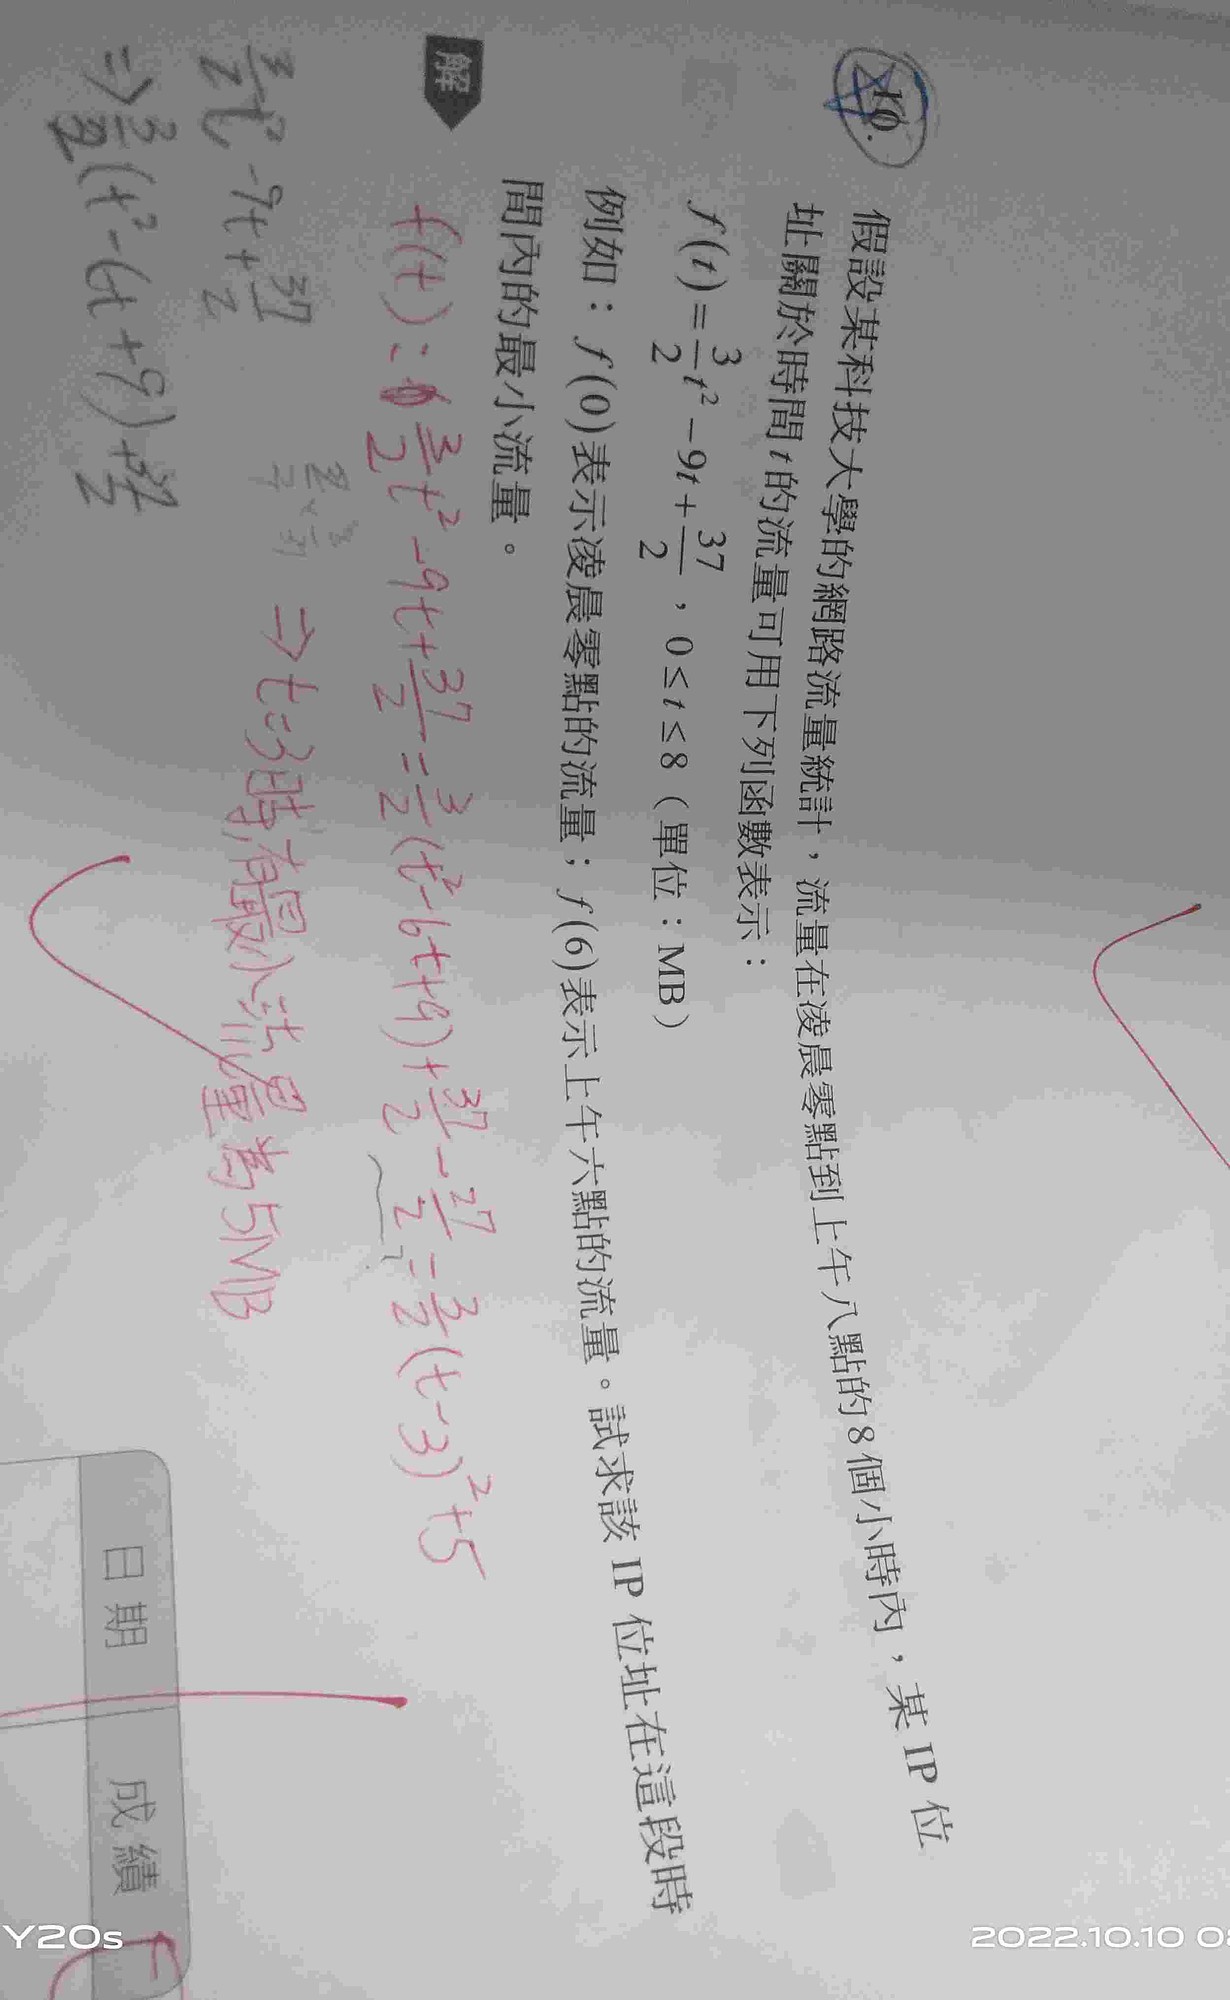 10.
假設某科技大學的網路流量統計，流量在凌晨零點到上午八點的8個小時內，某 IP 位
址關於時間 t 的流量可用下列函數表示：
f(t)=\frac{3}{2}t²-9t+\frac{37}{2}，0≤t≤8（單位：MB）
例如：f(0)表示凌晨零點的流量；f(6)表示上午六點的流量。試求該 IP 位址在這段時
間內的最小流量。
解
f(t): \frac{3}{2}t²-9t+\frac{37}{2}=\frac{3}{2}(t²-6t+9)+\frac{37}{2}-\frac{27}{2}=\frac{3}{2}(t-3)²+5
⇒ t=3時有最小流量為5MB
\frac{3}{2}t²-9t+\frac{37}{2}
⇒\frac{3}{2}(t²-6t+9)+
日期
成績
Y20s
2022.10.10